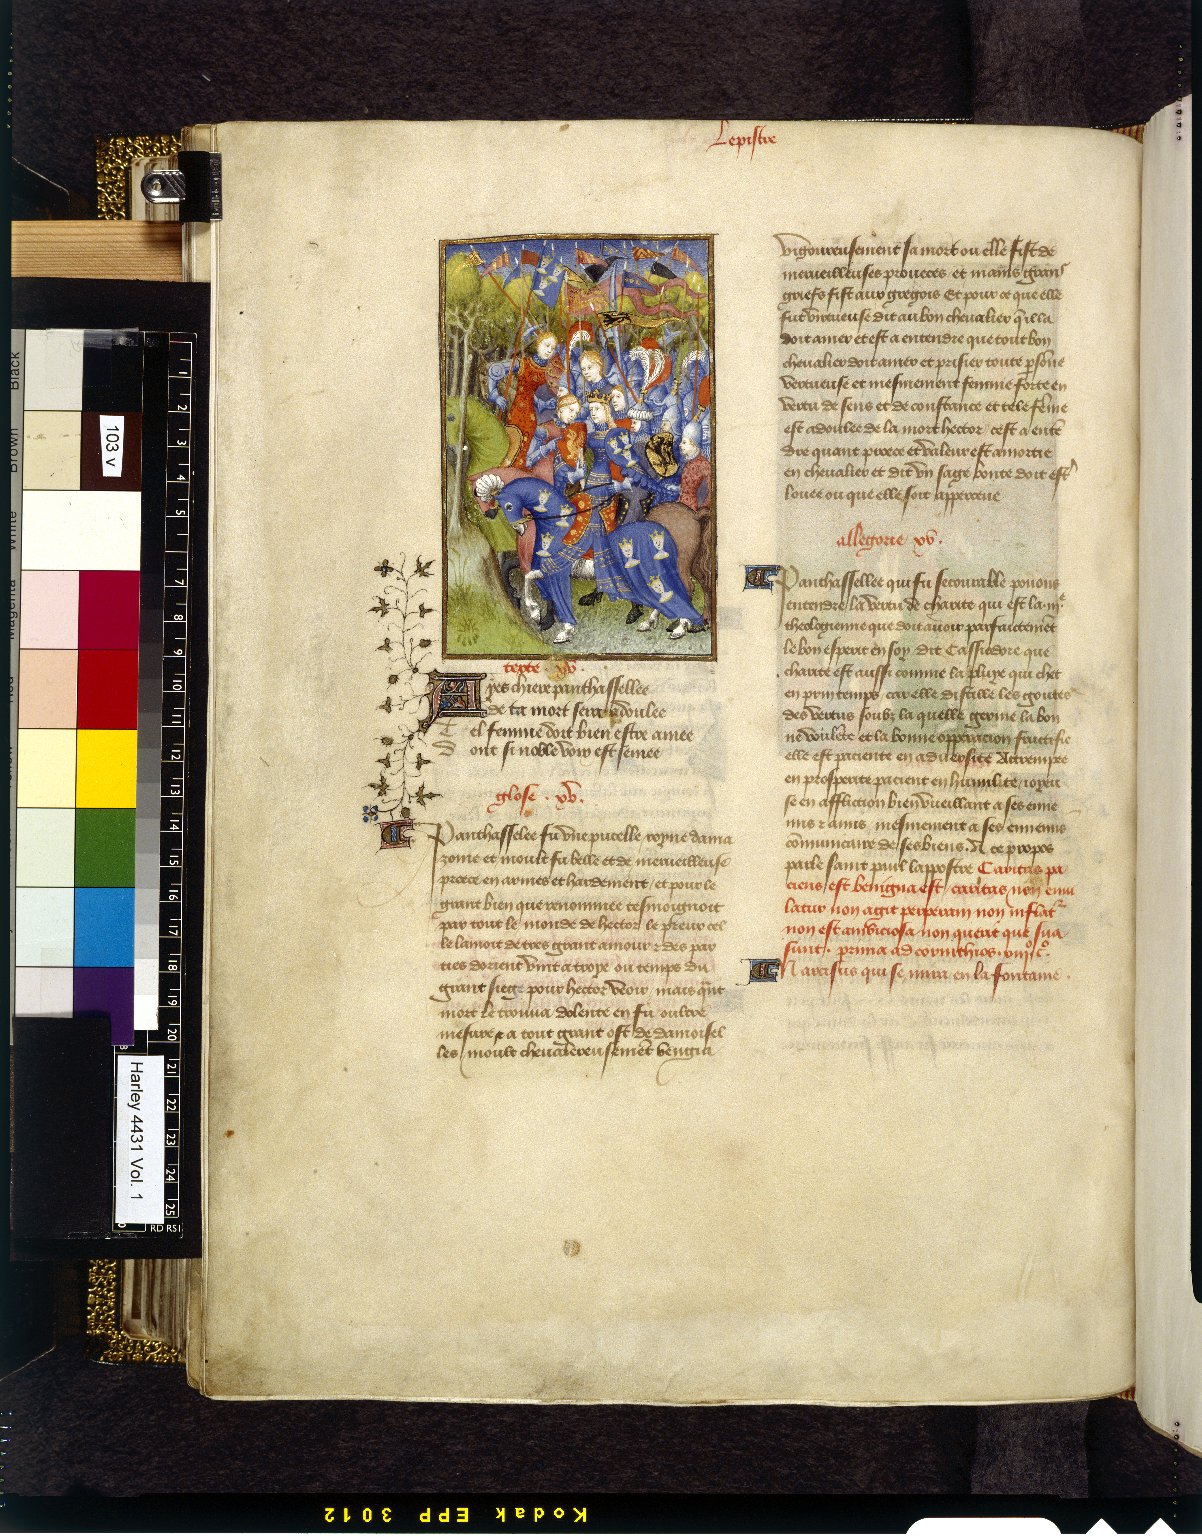 Lepistre
texte . xv.
Ayes chiere panthassellee
de ta mort sera adoulee
Tel femme doit bien estre amee
Dont si noble voix est semee
glose . xv.
Panthasselee fu vne pucelle royne dama
zome et moult fu belle et de merueilleuse
proece en armes et hardement / et pour le
grant bien que renommee tesmoignoit
par tout le monde de hector le preux cel
le lamoit de tres grant amour & des par
ties dorient vint a troye ou temps du
grant siege pour hector veoir / mais qnt
mort le trouua dolente en fu oultre
mesure & a tout grant ost de damoisel
les / moult cheualereusemet vengia
vigoureusement sa mort ou elle fist de
merueilleuses proueces et mains grans
griefs fist aux gregois Et pour ce que elle
fut vertueuse dit au bon cheualier qil la
doit amer et est a entendre que tout bon
cheualier doit amer et prisier toute psone
vertueuse et mesmement femme forte en
vertu de sens et de constance et tele feme
est adoulee de la mort hector / cest a ente
dre quant proece et valeur est amortie
en cheualier et dit vn sage bonte doit estre
louee ou que elle soit apperceue
allegorie xv.
Panthassellee qui fu secourable pouons
entendre la vertu de charite qui est la .iij.e
theologienne que doit auoir parfaictemet
le bon esperit en soy dit Cassiodore que
charite est aussi comme la pluye qui chet
en printemps car elle distille les goutes
des vertus soubz la quelle germe la bon
ne voulete et la bonne opperacion fructifie
elle est paciente en aduersite Attrempee
en prosperite pacient en humilite / ioyeu
se en affliction bienvueillant a ses enne
mis & amis mesmement a ses ennemis
comunicatiue de ses biens. A ce propos
parle saint paul lappostre Caritas pa
ciens est benigna est / caritas non emu
latur non agit perperam non inflatr
non est ambiciosa non querit que sua
sunt . prima ad corinthios. xiijo. co.
Narcisus qui se mira en la fontaine .
103 v
Harley 4431 Vol. 1
Black
Brown
White
Magenta
1
2
3
4
5
7
8
9
10
11
12
13
14
15
16
17
18
19
20
21
22
23
24
25
RD RSI
Kodak EPP 3012